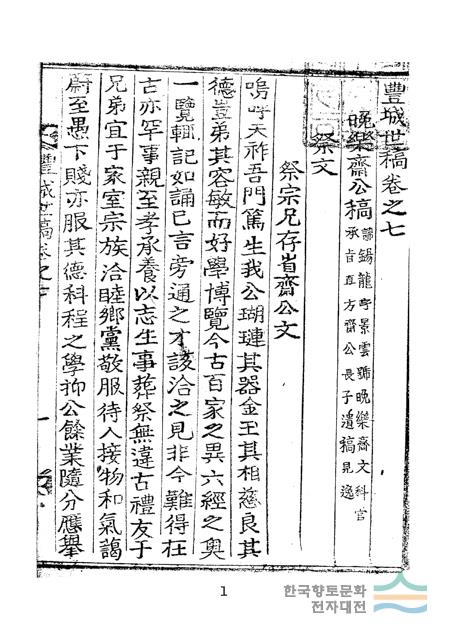 豐城世稿卷之七
晩樂齋公稿 諱錫龍字景雲號晩樂齋文科官
承旨直方齋公長子遺稿見逸
祭文
祭宗兄存省齋公文
嗚呼天祚吾門篤生我公瑚璉其器金玉其相慈良其
德豈弟其容敏而好學博覽今古百家之異六經之奧
一覽輒記如誦已言旁通之才該洽之見非今難得在
古亦罕事親至孝承養以志生事葬祭無違古禮友于
兄弟宜于家室宗族洽睦鄉黨敬服待人接物和氣藹
蔚至愚下賤亦服其德科程之學抑公餘業隨分應擧
豐城世稿卷之七
一
1
한국향토문화
전자대전